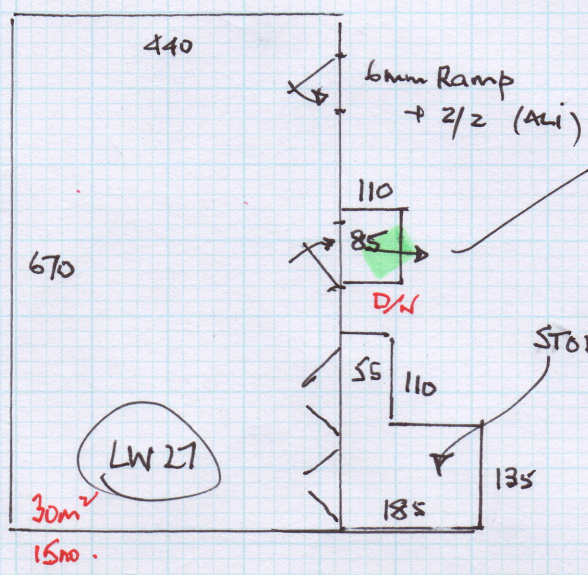 440
6mm Ramp
→ 2/2 (Ali)
110
85
670
D/N
55
110
LW 27
135
185
30m²
15no.